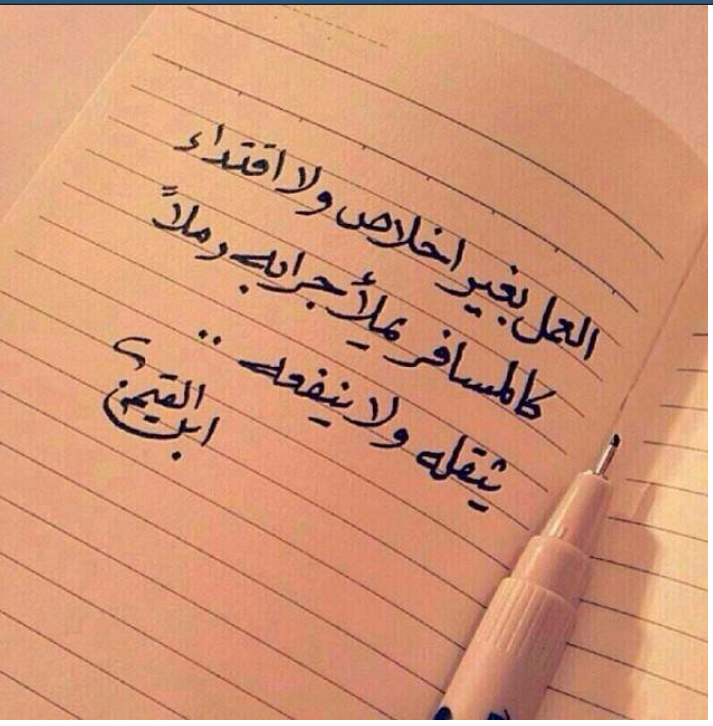 العمل بغير اخلاص ولا اقتداء
كالمسافر يملأ جرابه رملاً
يثقله ولا ينفعه ..
ابن القيم